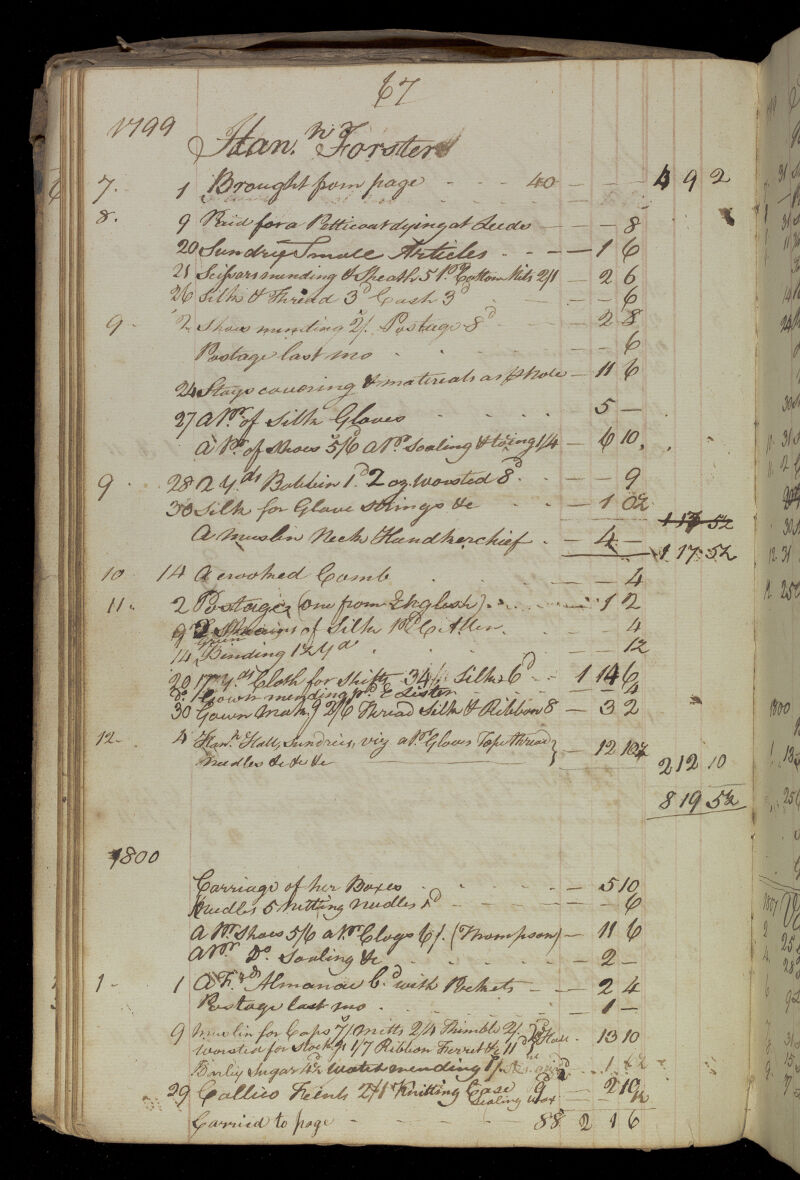 67
1799
Han.n Forster
7. 1 Brought from page - - - 40 — — — 4 9 2
8. 9 Paid for a Petticoat dying at Leeds — — 8
20 Sundry Small Articles - - - — 1 6
21 Scissars mending & Sheath 5 Pr Cotton Mits 2/1 — 2 6
26 Silk & Thread 3d Cash 3d — 6
9. 2 Shoes mending 2/. Postage 8d — 2 8
Postage last mo — 6
24 Stays covering & materials as Note — 11 6
27 a Pr. of Silk Gloves 5 —
a Pr. of Shoes 5/6 a Pr. Soaling & toeing 1/4 — 6 10
9. 28 2 Yds Bobbin 1d. 2 oz. Worsted 8d. — 9
30 Silk for Glove strings &c — 1 0½
1 17 5½
A muslin Neck Handkerchief - — 4 — 1 17 5½
10 14 A crooked Comb — — 4
11. 2 Postages (one from) — 1 2
9 2 Skains of Silk — 4
14 Binding 1½ Yd — 1½
20 17 Yds Cloth for Shifts 34/. Silk 6d 1 14 6
Do. Gown mending pd E Lister — 4
30 Gown Makg 2/6 Thread Silk & Ribbon 8 — 3 2
12. 4 Han.h Hall, Sundries, viz a Pr. Gloves Tape thread
needles &c &c &c — 12 10½
2 12 10
8 19 5½
1800
Carriage of her Boxes — 5 10
Needles 5 Knitting needles 1d — 6
a Pr. Shoes 5/6 a Pr. Clogs 6/. (Thompson) — 11 6
a Pr. Do. Soaling &c — 2 —
1 - 1 A Almanac with Pockets — 2 4
Postage last mo — 1 —
9 Muslin for Caps 7/ mitts 2/4 Thimble 2/. — 13 10
Worsted for Stockgs 1/7 Ribbon Ferret &c 11d Hall
Barley Sugar mending 1/.
29 Callico Fients 2/1 Knitting Case 9d — 2 10
Sealing wax
Carried to page - - - 88 2 1 6